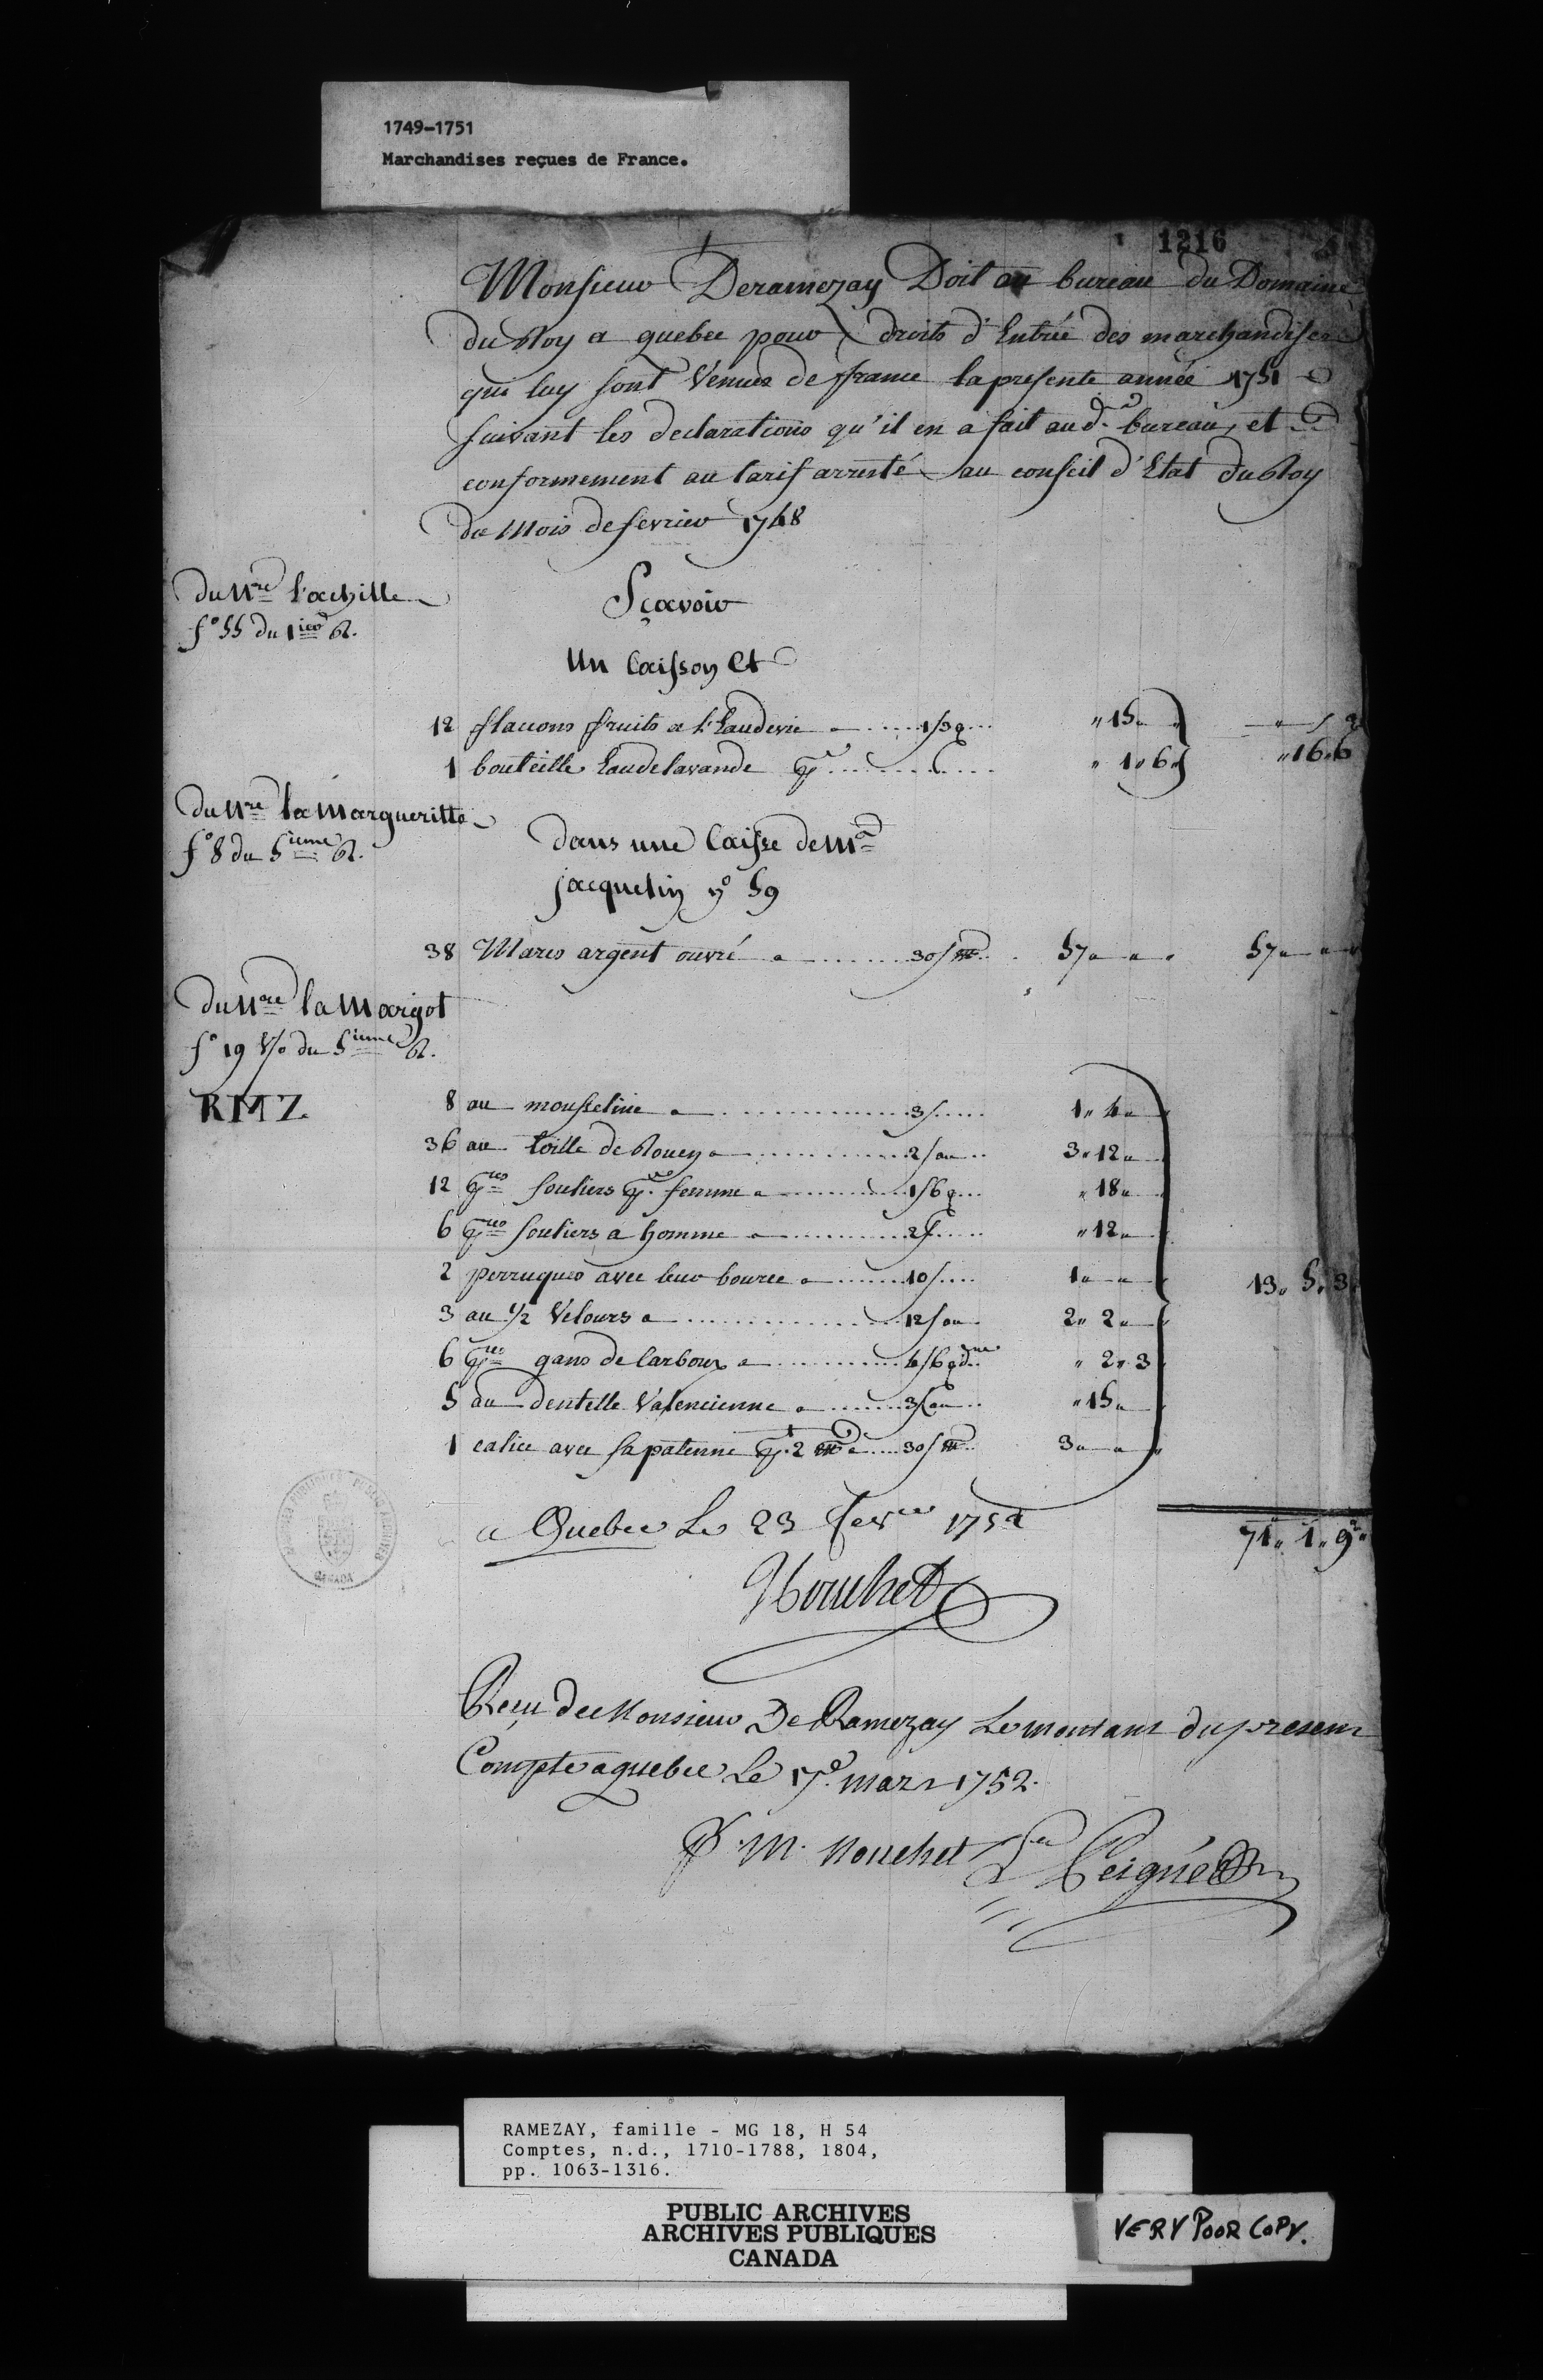 1749-1751
Marchandises reçues de France.
1216
Monsieur Deramezay Doit au bureau du Domaine
du Roy a quebec pour droits d'Entrée des marchandises
qui luy sont Venues de france la presente année 1751
suivant les declarations qu'il en a fait aud. bureau, et
conformement au tarif arresté au conseil d'Etat du Roy
du Mois de fevrier 1748
du Nre l'achille
fo 55 du 1ier R.
Sçavoir
Un Caisson Et
12 flacons fruits a l'Eaudevie a 1/3 p " 15 "
1 bouteille Eaudelavande " 1 " 6 " 16 " 6
du Nre la Margueritte
fo 8 du 5ieme R.
dans une Caisse de Mr
jacquelin no 59
38 Marcs argent ouvré a 30/m 57 " " 57 " "
du Nre la Margot
fo 19 Vo du 5ieme R.
RMZ
8 au mousseline a 3/ 1 " 4 "
36 au toille de Rouen a 2/au 3 " 12 "
12 pres souliers pr femme a 1/6 p " 18 "
6 pres souliers a homme a 2/ " 12 "
2 perruques avec leur bource a 10/ 1 " " 13 " 5 " 3
3 au 1/2 Velours a 12/au 2 " 2 "
6 pres gans de Carboux a 4/6 p dne " 2 " 3
5 au dentelle Valencienne a 3/au " 15 "
1 calice avec sa patenne pt 2 m a 30/m 3 " "
a Quebec Le 23 fevrer 1752
71 " 1 " 9
Nouchet
Reçu de Monsieur De Ramezay Le montant du present
Compte a quebec Le 17e. mars 1752.
P. M. Nouchet
RAMEZAY, famille - MG 18, H 54
Comptes, n.d., 1710-1788, 1804,
pp. 1063-1316.
PUBLIC ARCHIVES
ARCHIVES PUBLIQUES
CANADA
VERY POOR COPY.